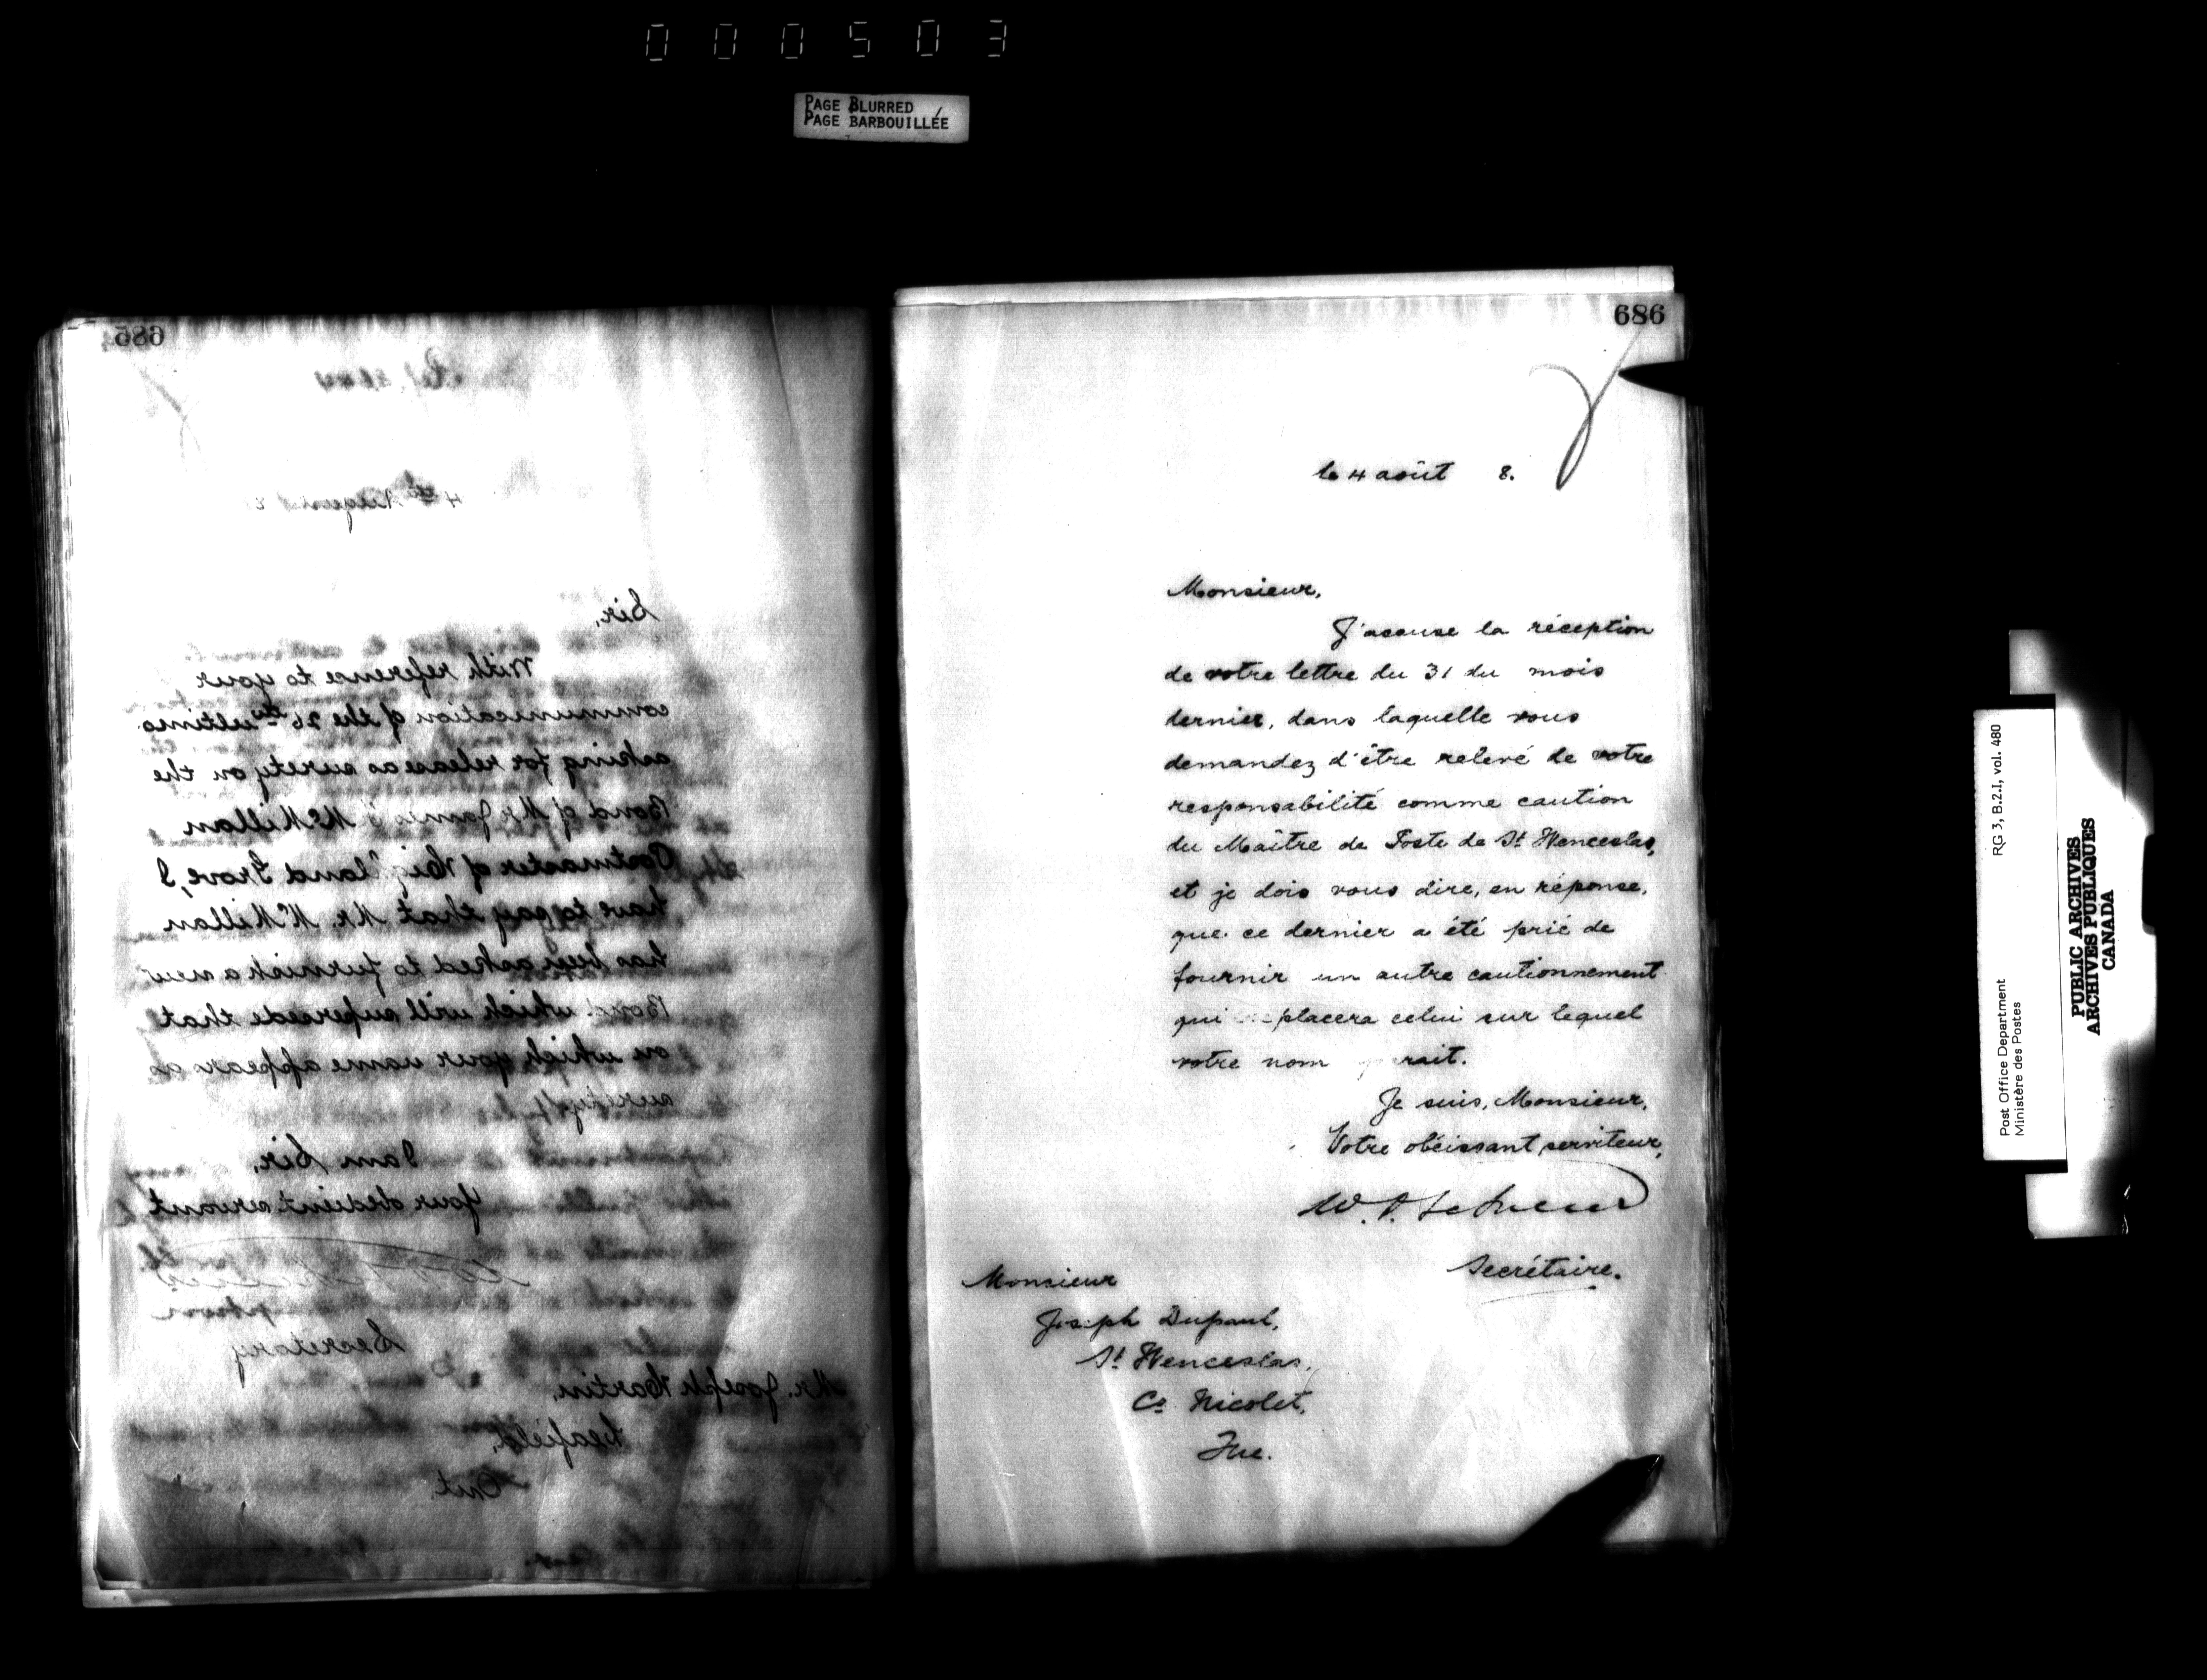 000503
PAGE BLURRED
PAGE BARBOUILLÉE
685
4th August 8
Sir,
With reference to your
communication of the 26th ultimo
asking for release as surety on the
Bond of Mr James McMillan
Postmaster of Land Grove, I
have to say that Mr. McMillan
has been asked to furnish a new
Bond which will supersede that
on which your name appears as
surety
I am Sir,
Your obedient servant
Secretary
Mr. Joseph Martin,
Leafield,
Ont
686
le 4 août 8.
Monsieur,
J'accuse la réception
de votre lettre du 31 du mois
dernier, dans laquelle vous
demandez d'être relevé de votre
responsabilité comme caution
du Maître de Poste de St Wenceslas,
et je dois vous dire, en réponse,
que ce dernier a été prié de
fournir un autre cautionnement
qui placera celui sur lequel
votre nom
Je suis, Monsieur,
Votre obéissant serviteur,
Secrétaire.
Monsieur
Joseph Dupaul,
St Wenceslas,
Co Nicolet,
Que.
Post Office Department
Ministère des Postes
RG 3, B.2.I, vol. 480
PUBLIC ARCHIVES
ARCHIVES PUBLIQUES
CANADA